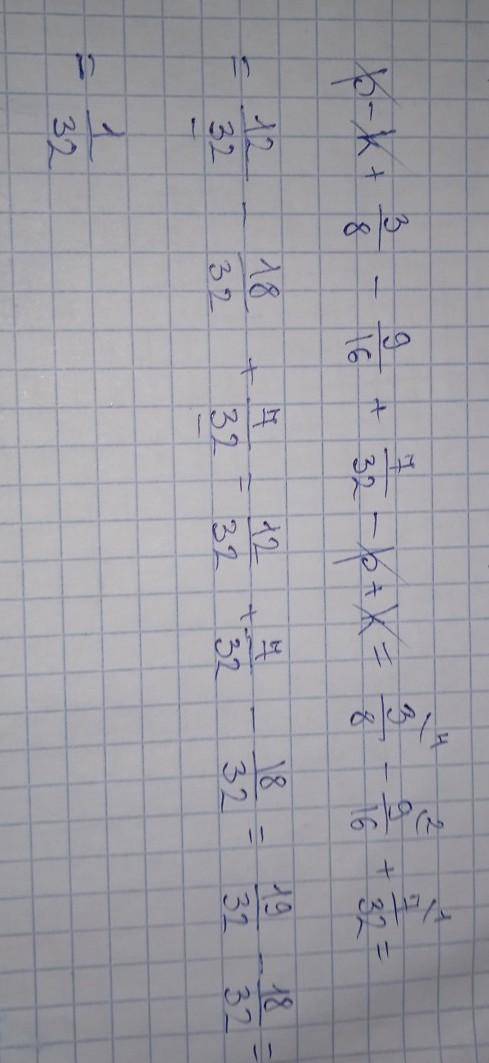 p - k + 3/8 - 9/16 + 7/32 - p + k = 3/8 ⁽⁴ - 9/16 ⁽² + 7/32 ⁽¹ =
= 12/32 - 18/32 + 7/32 = 12/32 + 7/32 - 18/32 = 19/32 - 18/32 =
= 1/32